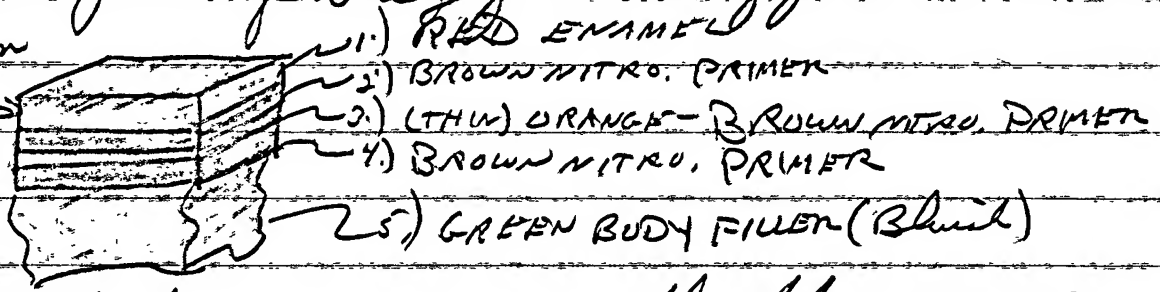 1.) RED ENAMEL
2.) BROWN NITRO. PRIMER
3.) (THIN) ORANGE-BROWN NITRO. PRIMER
4.) BROWN NITRO. PRIMER
5.) GREEN BODY FILLER (Bluish)